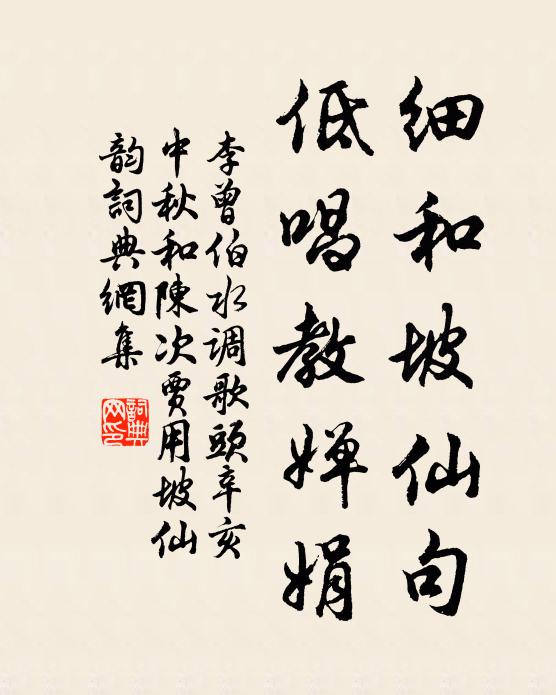 细和坡仙句
低唱教婵娟
李曾伯水调歌頭辛亥
中秋和陳次賈用坡仙
韵詞典網集
詞典
网印